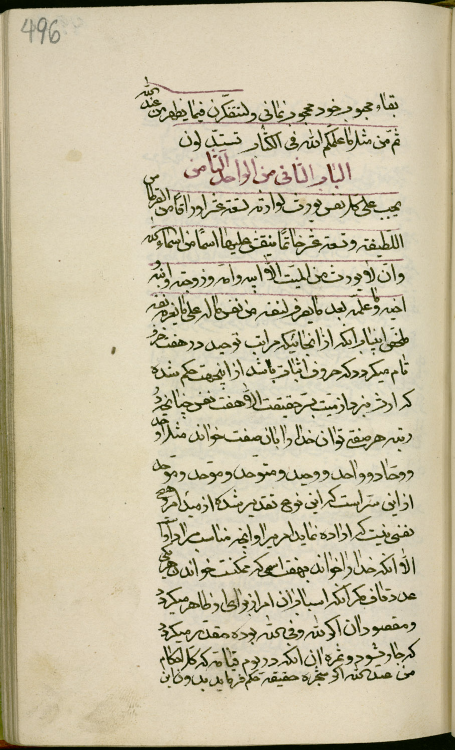 496
بقاء محبوب خود محجوب نمانی ولتتفکرن فیما یظهر من عند الله
ثم من مثل ما علمکم الله فی الکتاب تستدلون
الباب الثانی من الواحد الثامن
یجب علی کل نفس ان یورث لوارثه تسعة عشر اوراقا من القرطاس
اللطیفة و تسعة عشر خاتما ینقش علیها اسما من اسماء الله
و ان لا یورث من المیت الا ابیه و امه و زوجته و ابنه و
اخیه و معلمه بعد ما یصرف لنفسه من نفس ماله علی ما یعزه نفسه
ملخص این باب آنکه از آنجائیکه مراتب توحید در هفت حرف
تام میگردد که حروف اثبات باشد از اینجهت حکم شده
که ارث نیست بر حقیقت الا هفت نفس چنانچه در
رتبه هر صفتی توان خدا را بان صفت خواند مثلا واحد
و وحاد و واحد و وحید و متوحد و موحد و موحد
از این سر است که این نوع تقدیر شده از مبدء امر و هیچ
نفسی نیست که اراده نماید امریرا و آنچه مناسب اراده اوست
الا آنکه خدا را خواند بهفت اسمی که ممکنست خواند
عدد قاف مگر آنکه اسباب از آن امر از برای او ظاهر میگردد
و مقصود آن اگر لله و فی الله بوده مقدر میگردد
که جاری شود و ثمره آن آنکه در یوم قیامة که کل احکام
من عند الله از شجره حقیقة حکم فرماید بدون این